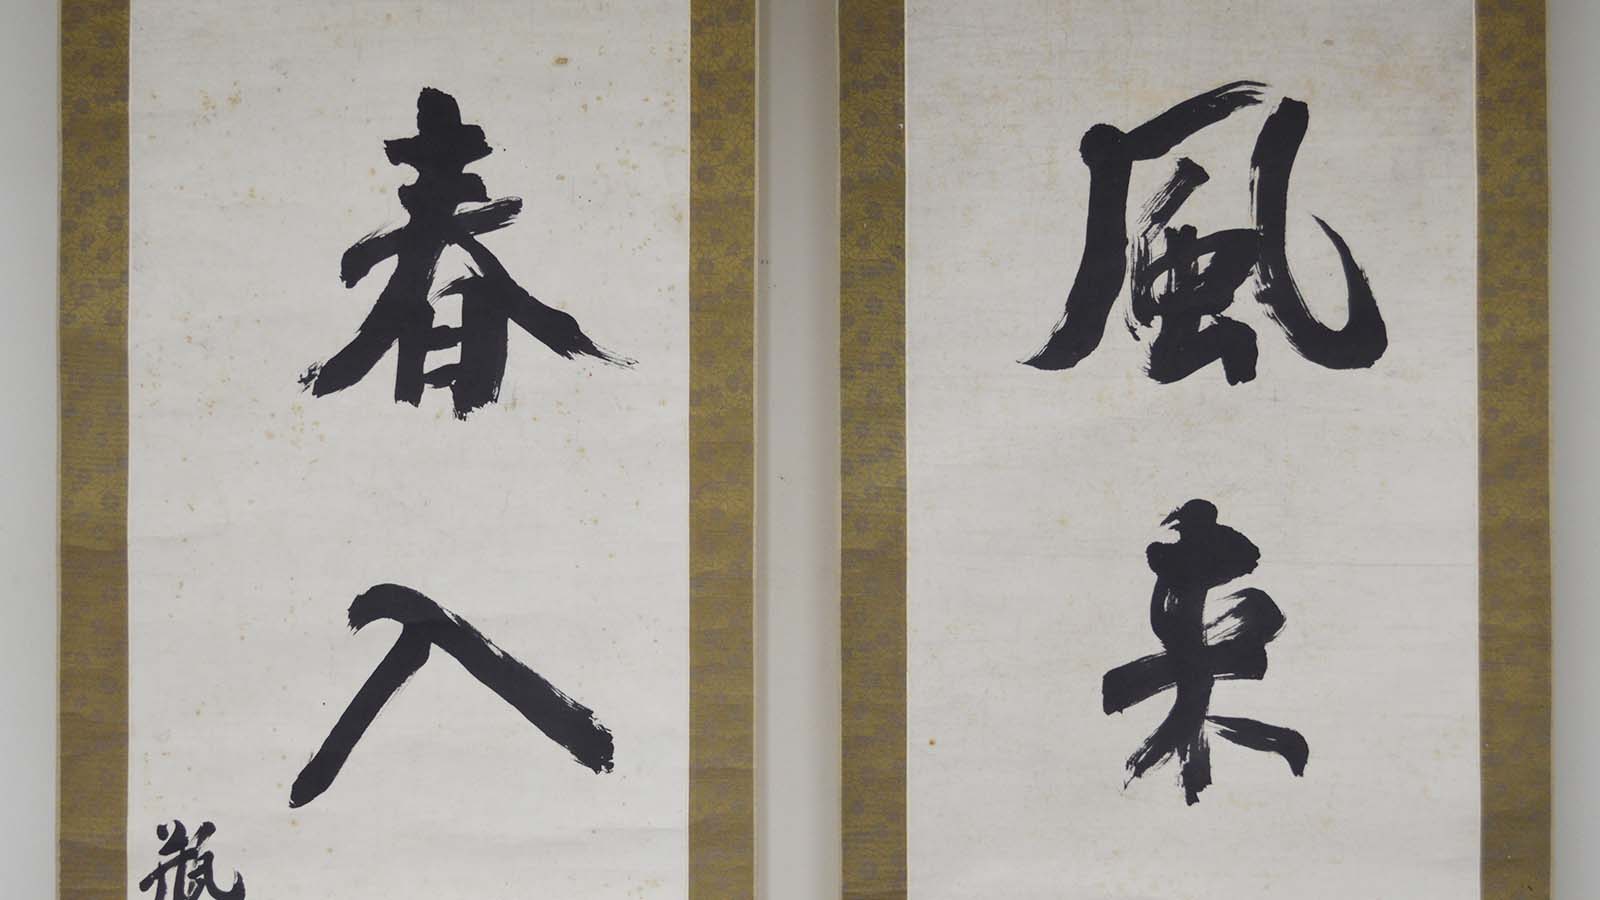 風
来
春
入
瓶